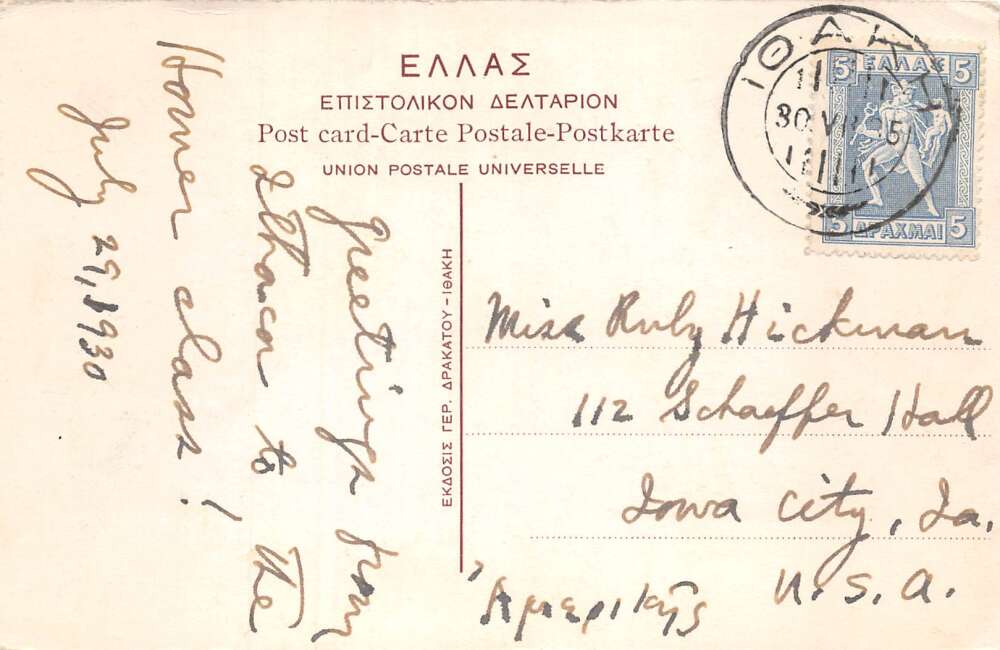 ΕΛΛΑΣ
ΕΠΙΣΤΟΛΙΚΟΝ ΔΕΛΤΑΡΙΟΝ
Post card-Carte Postale-Postkarte
UNION POSTALE UNIVERSELLE
ΙΘΑΚΗ
30 VII
5 ΕΛΛΑΣ 5
5 ΔΡΑΧΜΑΙ 5
Greetings from
Ithaca to the
Homer class!
July 29, 1930
ΕΚΔΟΣΙΣ ΓΕΡ. ΔΡΑΚΑΤΟΥ-ΙΘΑΚΗ
Miss Ruby Hickman
112 Schaeffer Hall
Iowa City, Ia.
U.S.A.
Ἀμερικῆς